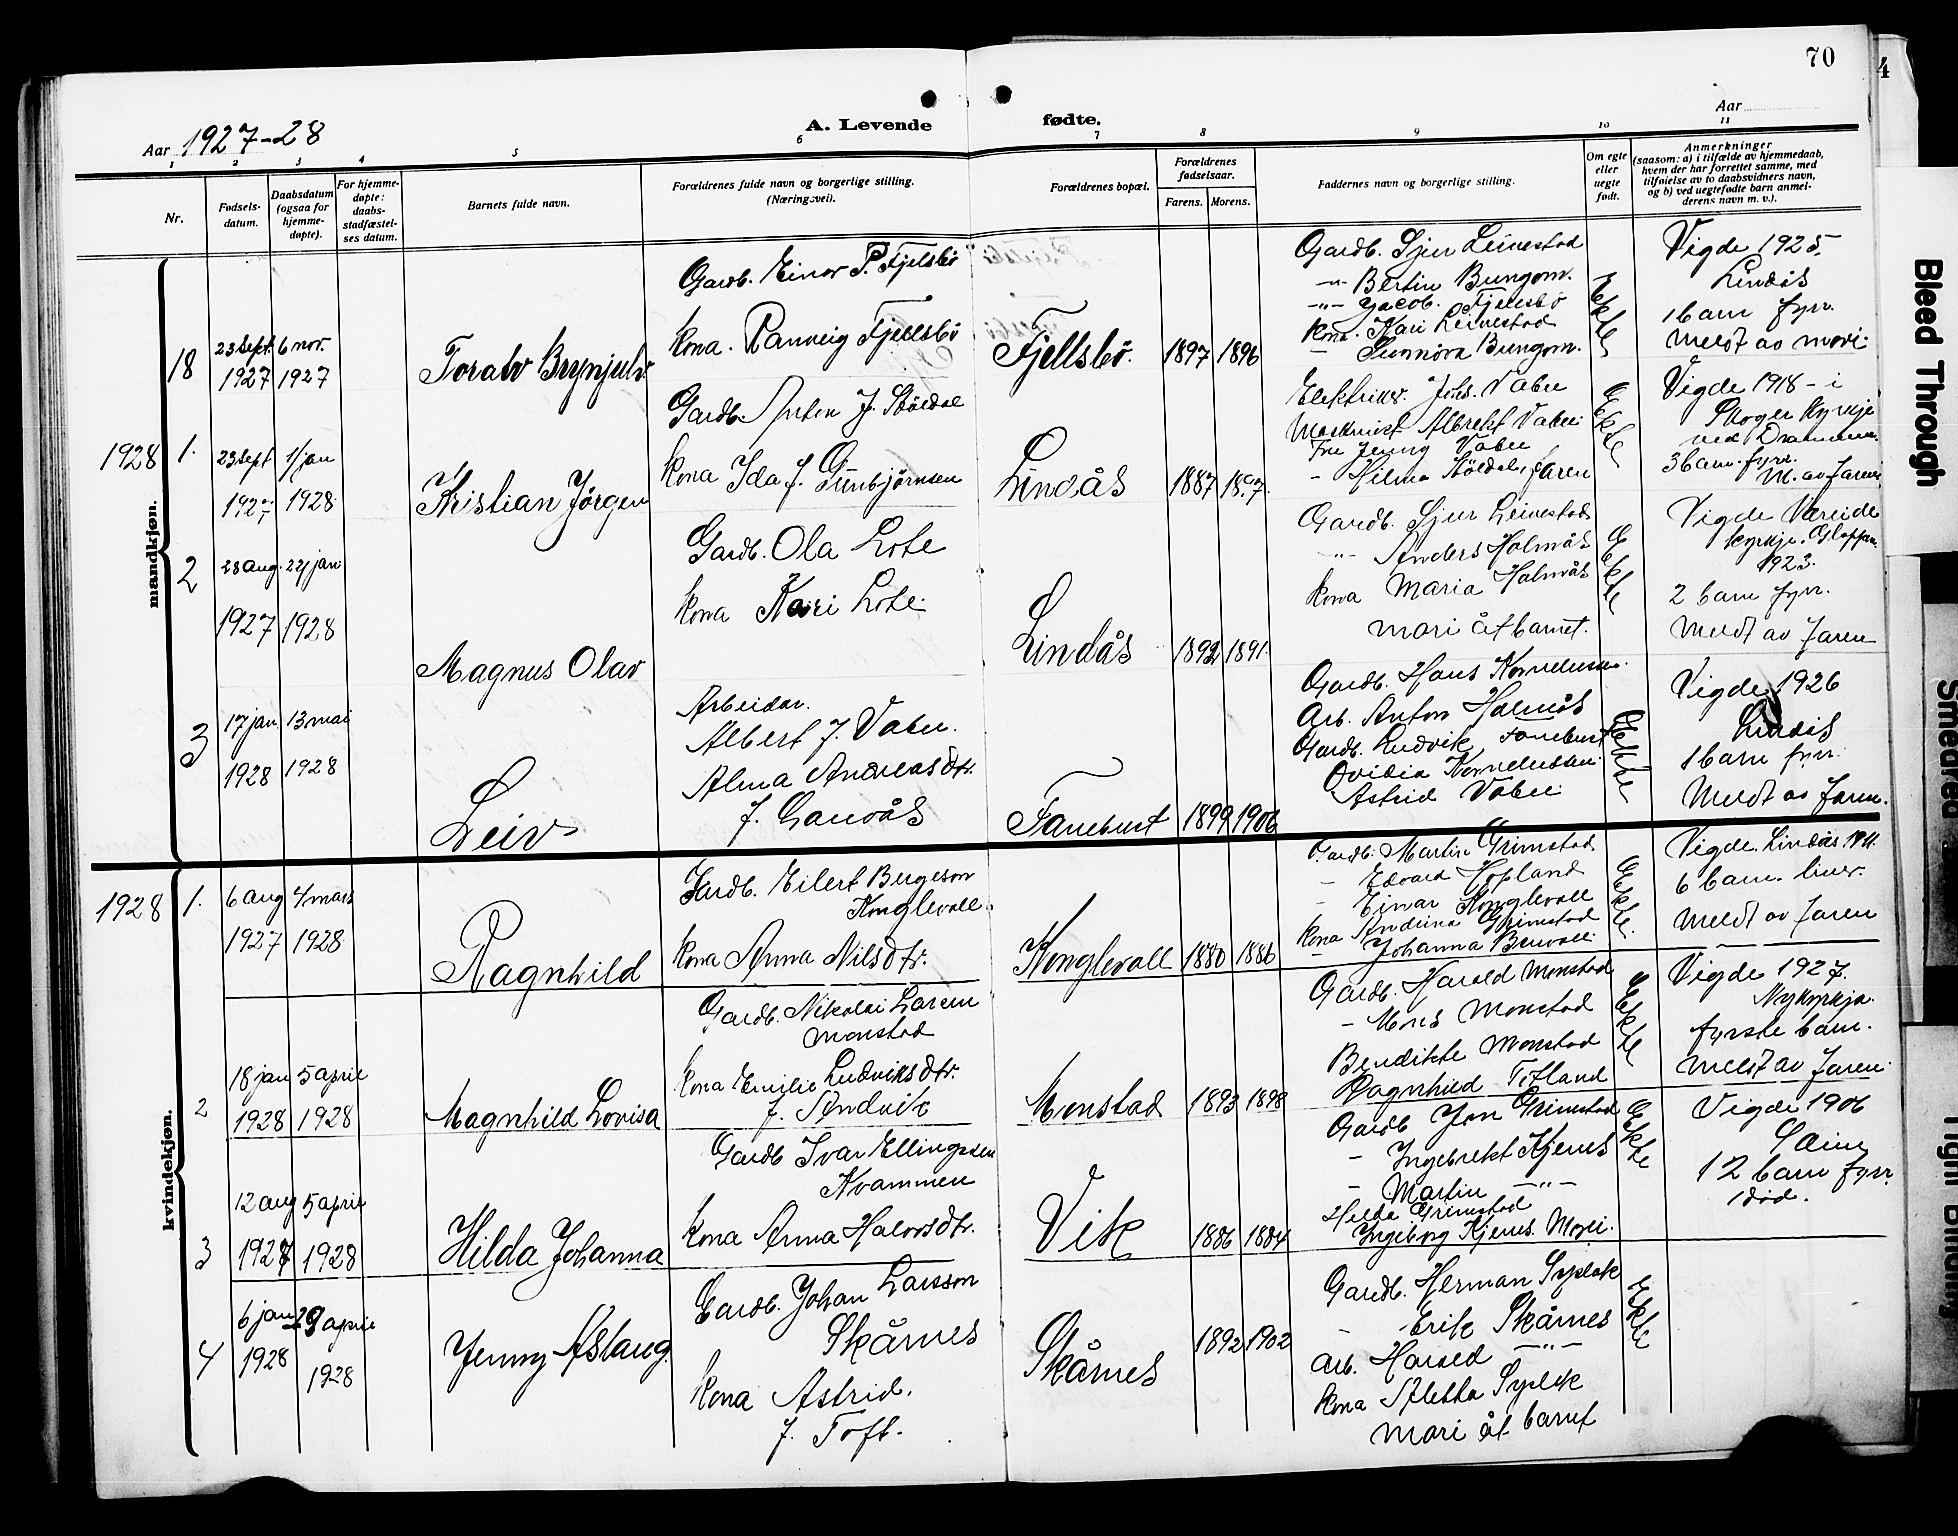 70
4
Aar 1927-28
A. Levende fødte.
Aar
1 2 3 4 5 6 7 8 9 10 11
Nr.
Fødsels-datum.
Daabsdatum (ogsaa for hjemme-døpte).
For hjemme-døpte: daabs-stadfæstel-ses datum.
Barnets fulde navn.
Forældrenes fulde navn og borgerlige stilling.
(Næringsvei).
Forældrenes bopæl.
Forældrenes fødselsaar.
Farens. Morens.
Faddernes navn og borgerlige stilling.
Om egte eller uegte født.
Anmerkninger
(saasom: a) i tilfælde av hjemmedaab, hvem der har forrettet samme, med tilføielse av to daabsvidners navn, og b) ved uegtefødte barn anmel-derens navn m. v.).
mandkjøn.
18
23 sept. 1927
6 nov. 1927
Toralv Brynjulv
Gardb. Einar P. Fjellsbö
Kona. Ranveig Fjellsbö
Fjellsbö.
1897 1896
Gardb. Sjur Leinestad
-"- Bertin Bungom.
-"- Jacob. Fjellsbö
Kona. Kari Leinestad
- Gunnöra Bungom.
Ekte
Vigde 1925.
Lindås
1 barn fyrr.
Meldt av mori.
1928
1.
23 sept 1927
1/jan 1928
Kristian Jörgen
Gardb. Anton J. Stöldal
Kona Ida f. Gunbjörnsen
Lindås
1887 1897.
Elektriker. Johs. Vabu
Maskinist Albrekt Vabu
Fru Jenny Vabu
- Hilma Stöldal, faren
Ekte
Vigde 1918 - i
Skoger Kyrkje
ved Drammen.
3 barn. fyrr.
M. av faren
2
28 aug. 1927
22/jan 1928
Magnus Olav
Gardb. Ola Lote
Kona Kari Lote.
Lindås
1892 1891.
Gardb. Sjur Leinestad
-"- Anders Holmås
Kona Maria Holmås
mori åt barnet.
Ekte
Vigde Vereide
kyrkje. Gloppen
1923.
2 barn fyrr.
Meldt av faren
3
17 jan 1928
13 mai 1928
Leiv
Arbeidar.
Albert J. Vabu.
Alma Andreasdtr.
f. Lauvås
Fanebust
1899 1906
Gardb. Hans Kornelius­sen.
Arb. Anton Holmås
Gardb. Ludvik Fanebust
Ovidia Korneliussen
Astrid Vabu
Ekte
Vigde 1926
Lindås
1 barn fyrr.
Meldt av faren.
kvindekjøn.
1928
1.
6 aug 1927
4 mars 1928
Ragnhild
Gardb. Eilert Bergeson
Konglevoll
Kona Anna Nilsdtr.
Konglevoll
1880 1886
Gardb. Martin Grimstad
- Edvard Hopland
- Einar Konglevoll
Kona Andrina Grimstad
- Johanna
Ekte.
Vigde. Lindås. 1911.
6 barn. liver.
Meldt av faren
2
18 jan 1928
5 april 1928
Magnhild Lovisa
Gardb. Nikolai Larsen
Monstad
Kona Emilie Ludviksdtr.
f. Andvik
Monstad
1893 1898
Gardb. Harald Monstad
- Mons Monstad
Bendikte Monstad
Ragnhild Tofland
Ekte
Vigde 1927.
Nykyrkja.
fyrste barn.
Meldt av faren
3
12 aug 1927
5 april 1928
Hilda Johanna
Gardb Ivar Ellingsen
Kvammen
Kona Anna Halvorsdtr.
Vik
1886 1884
Gardb Jon Grimstad
- Ingebrekt Kjenes
- Martin -"-
Helda Grimstad
Ingeborg Kjenes. Mori.
Ekte
Vigde 1906
12 barn fyrr.
1 död.
4
6 jan 1928
29 april 1928
Jenny Aslaug.
Gardb. Johan Larsson
Skårnes
Kona Astrid.
f. Toft.
Skårnes
1892 1902
Gardb. Herman
- Erik Skårnes
Arb. Harald -"-
Kona Aletta
Mori åt barnet
Ekte
Bleed Through